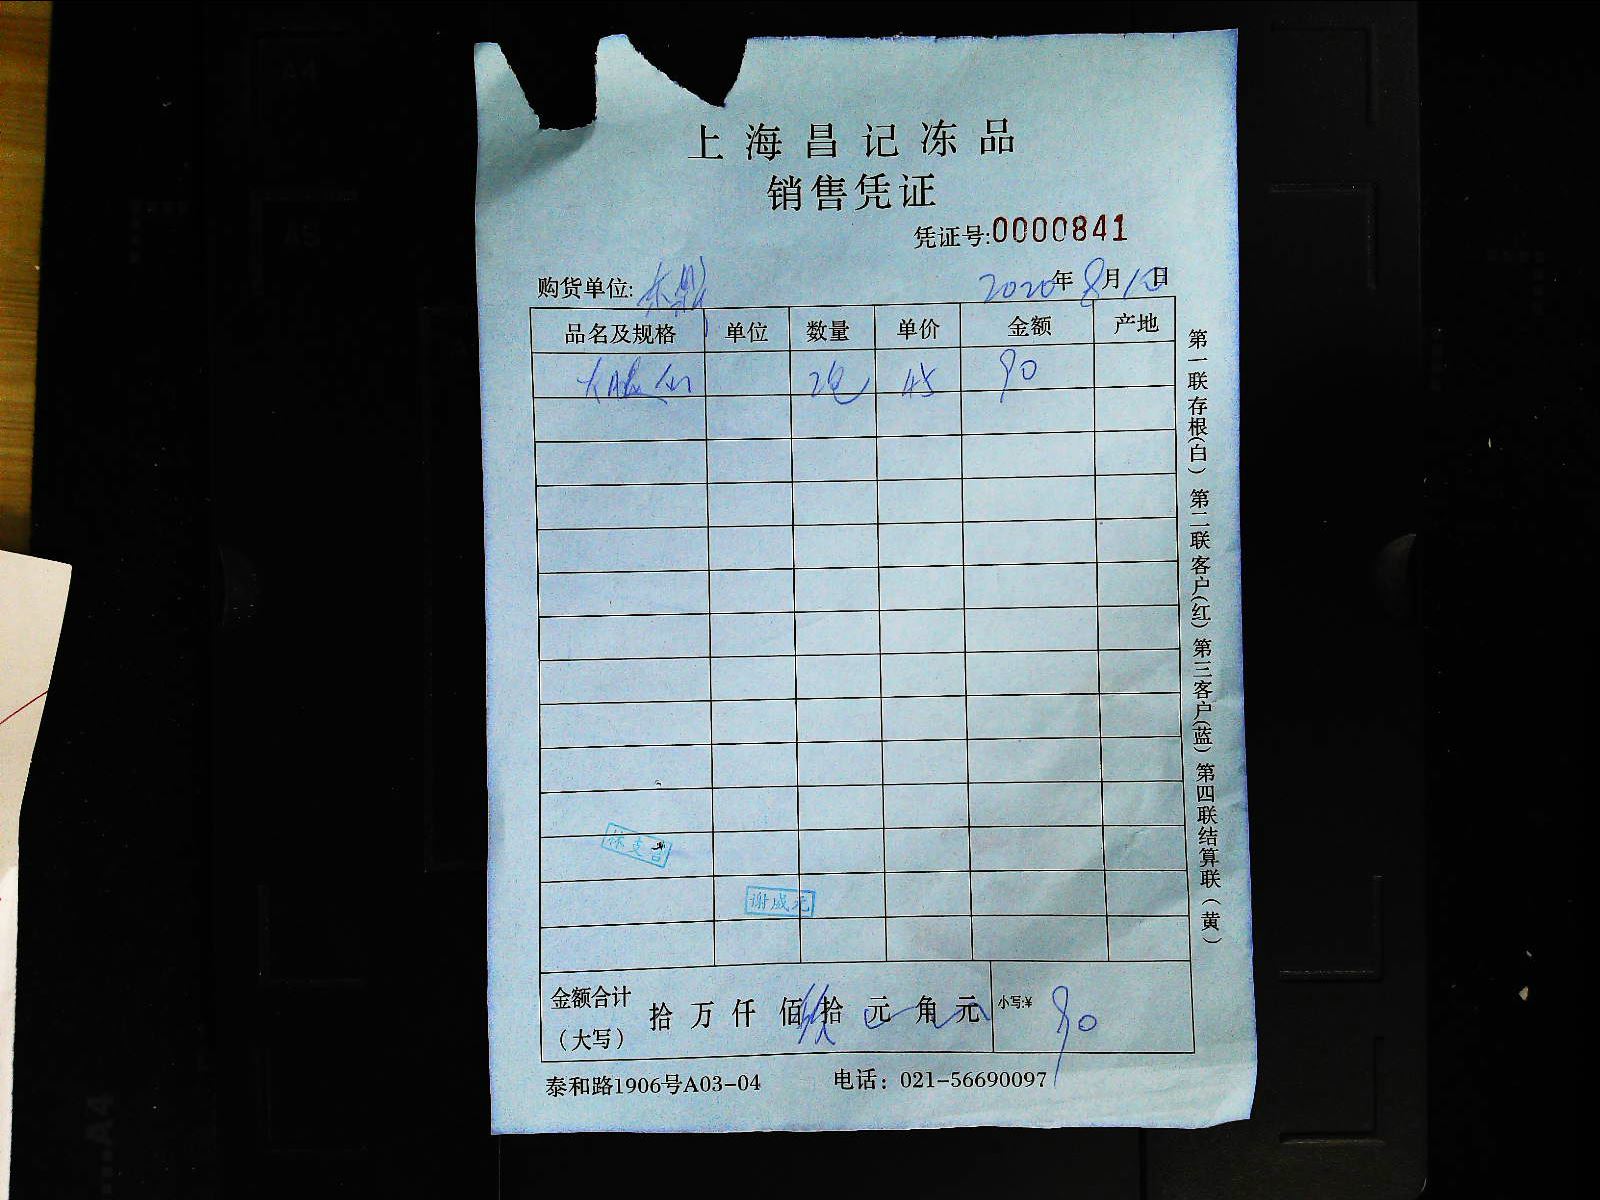 上海昌记冻品
销售凭证
凭证号:0000841
购货单位:
2020年8月10日
品名及规格 单位 数量 单价 金额 产地
2包 45 90
谢成元
金额合计（大写） 拾 万 仟 佰 玖拾 元 角 元 小写:¥ 90
泰和路1906号A03-04 电话：021-56690097
第一联存根（白） 第二联客户（红） 第三客户（蓝） 第四联结算联（黄）